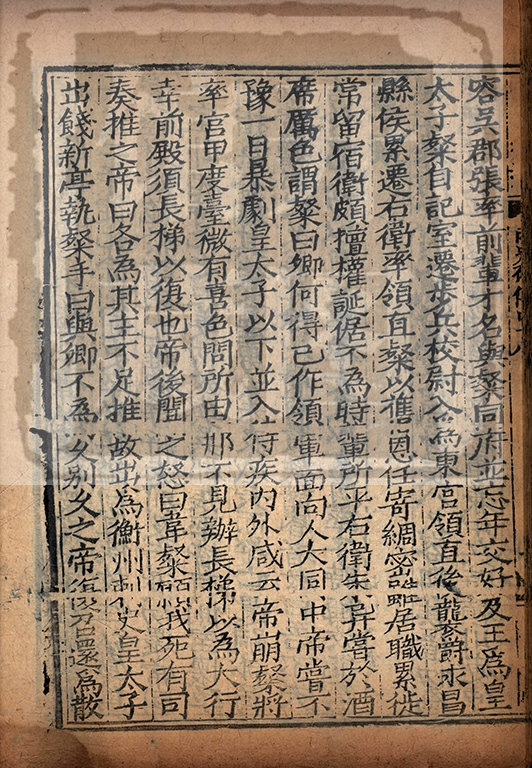 容吳郡張率前輩才名與粲同府並忘年交好及王為皇
太子粲自記室遷步兵校尉入為東宮領直後襲爵永昌
縣侯累遷右衛率領直粲以舊恩任寄綢密雖居職累徙
常留宿衛頗擅權誕倨不為時輩所平右衛朱异嘗於酒
席厲色謂粲曰卿何得已作領軍面向人大同中帝嘗不
豫一日暴劇皇太子以下並入侍疾內外咸云帝崩粲將
率宮甲度臺微有喜色問所由那不見辦長梯以為大行
幸前殿須長梯以復也帝後聞之怒曰韋粲願我死有司
奏推之帝曰各為其主不足推故出為衡州刺史皇太子
出餞新亭執粲手曰與卿不為久別久之帝復召還為散